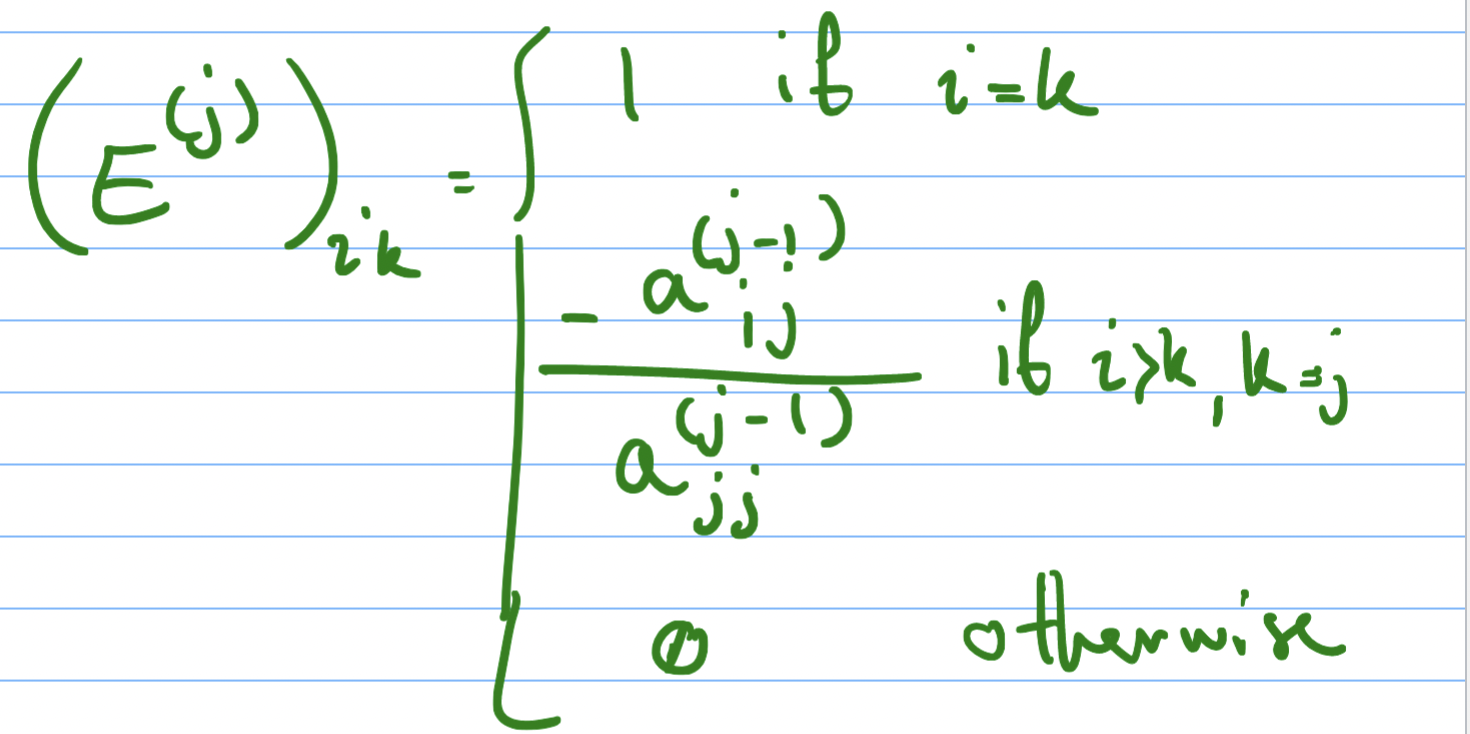 (E^{(j)})_{ik} = { 1 if i=k
-a_{ij}^{(j-1)} / a_{jj}^{(j-1)} if i>k, k=j
0 otherwise